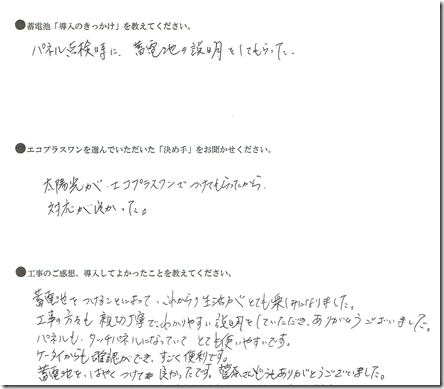 ●蓄電池「導入のきっかけ」を教えてください。
パネル点検時に、蓄電池の説明をしてもらった。
●エコプラスワンを選んでいただいた「決め手」をお聞かせください。
太陽光が、エコプラスワンでつけてもらったから。
対応が良かった。
●工事のご感想、導入してよかったことを教えてください。
蓄電池をつけることによって、これからの生活がとても楽しみになりました。
工事の方々も親切丁寧で、わかりやすい説明をしていただき、ありがとうございました。
パネルも、タッチパネルになっていてとても使いやすいです。
ケータイからも確認ができ、すごく便利です。
蓄電池を、はやくつけて良かったです。菅原さんどうもありがとうございました。